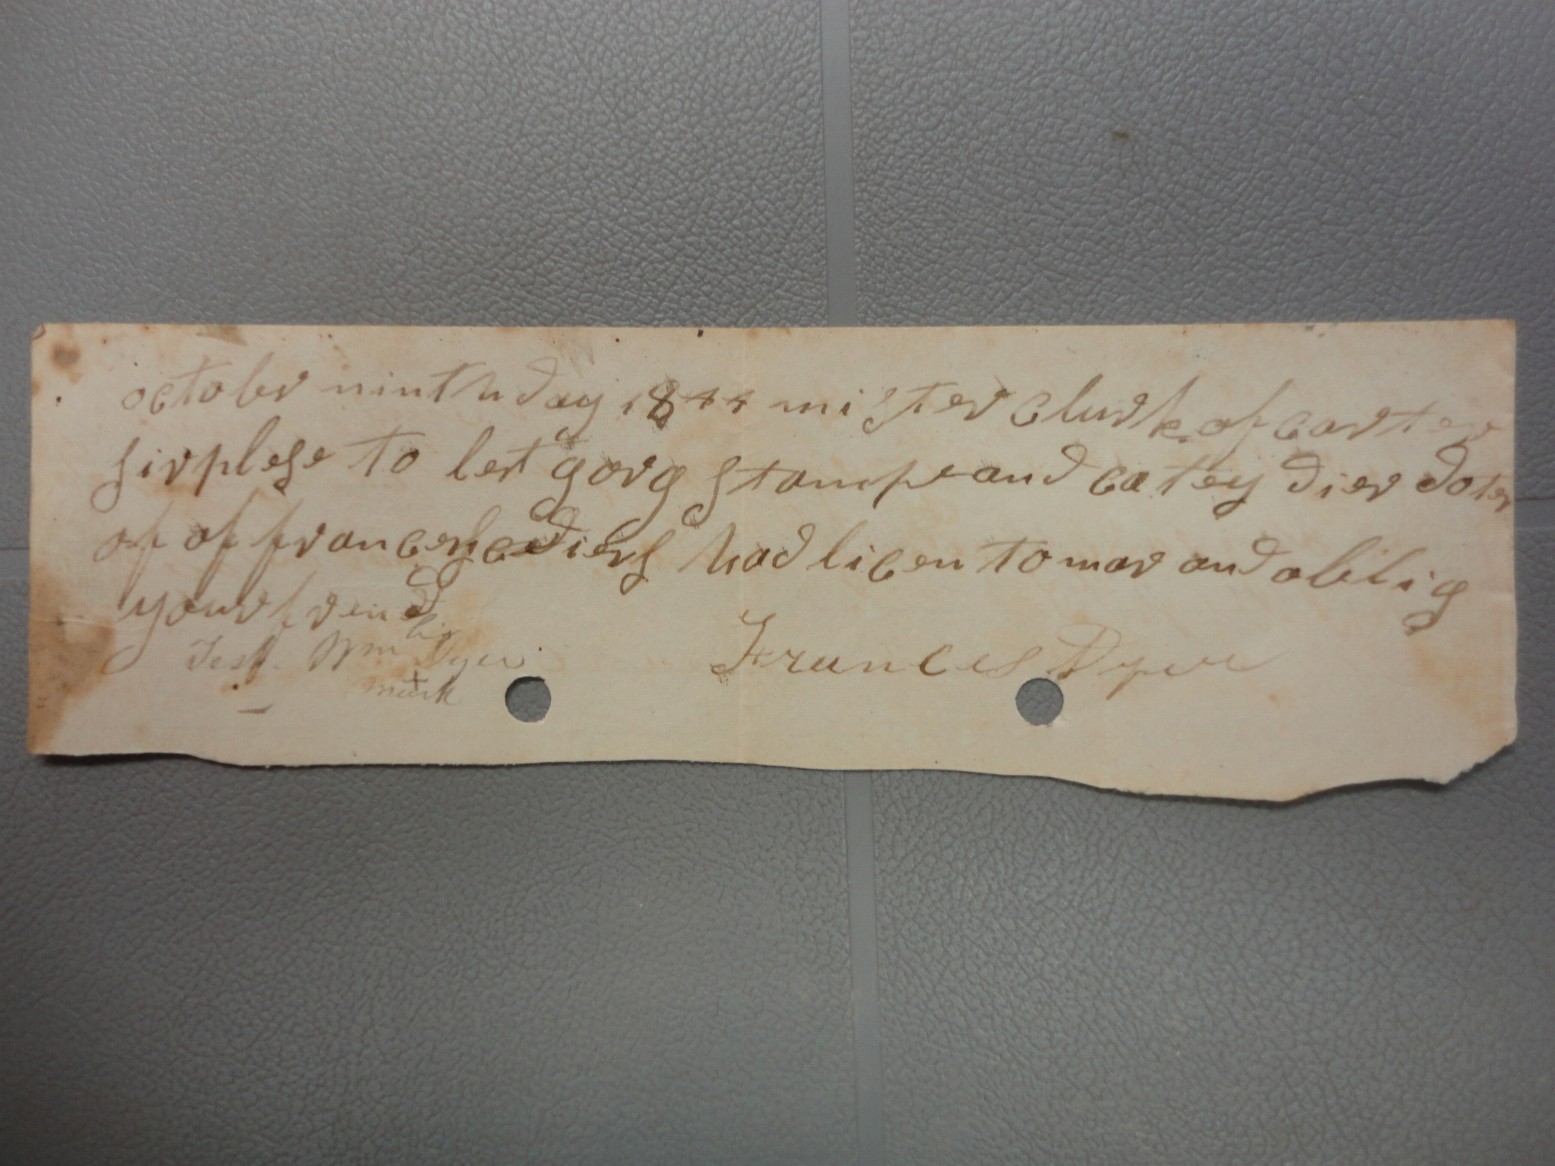 october ninth day 1844 mister clurk of carter
sir plese to let gorg stampr and catey dier doter
of of frances diers had licen to mar and oblig
your frend
Test. Wm his Dyer Frances Dyer
mark